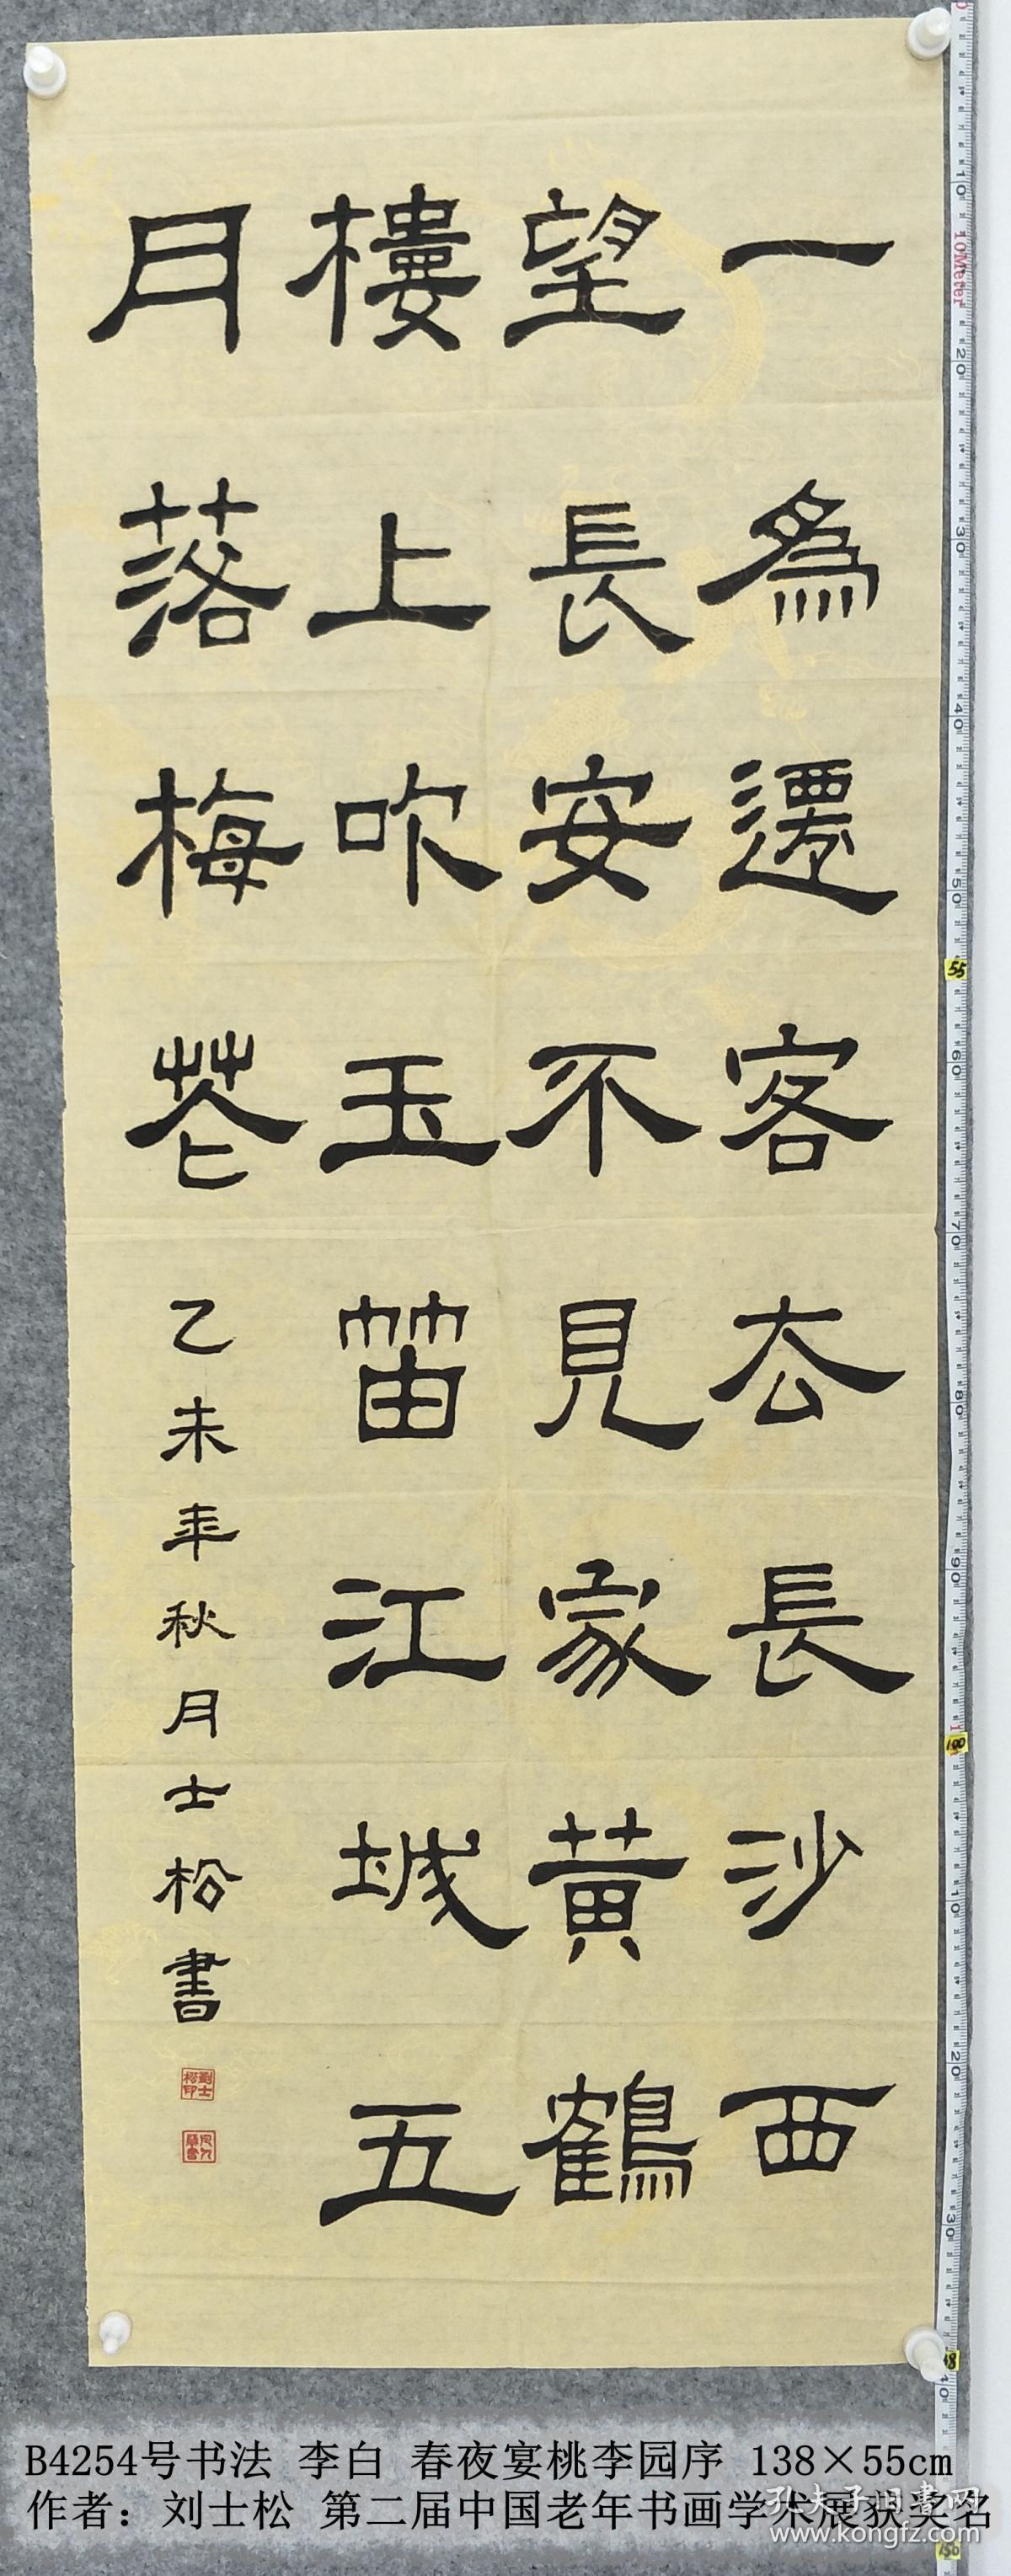 一為遷客去長沙西
望長安不見家黃鶴
樓上吹玉笛江城五
月落梅花
乙未年秋月士松書
劉士松印
B4254号书法 李白 春夜宴桃李园序 138×55cm
作者：刘士松 第二届中国老年书画学术展获奖名
孔夫子旧書网
www.kongfz.com
10Meter
55
100